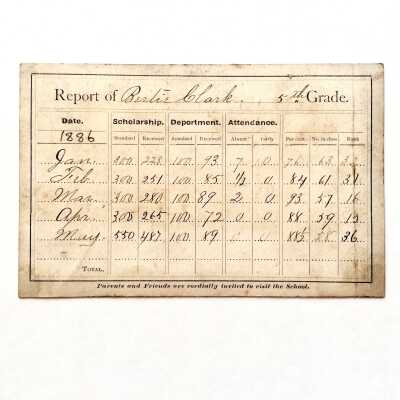 Report of Bertie Clark. 5th Grade.
Date. Scholarship. Department. Attendance.
1886 Standard Received Standard Received Absent Tardy Per cent. No. in class Rank
Jan 300 228 100 93 7 0 76 63
Feb 300 251 100 85 1/2 0 84 61 31
Mar 300 280 100 89 2 0 93 57 16
Apr 300 265 100 72 0 0 88 59 15
May 550 487 100 89 88½ 58 36
Total.
Parents and Friends are cordially invited to visit the School.